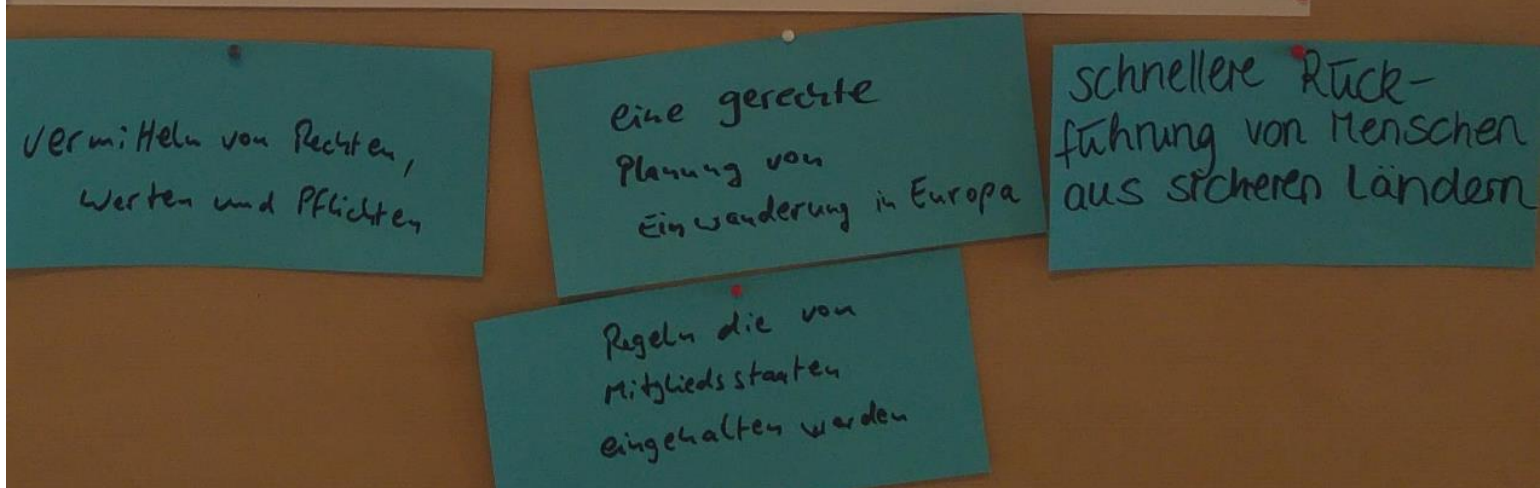 vermitteln von Rechten,
Werten und Pflichten
eine gerechte
Planung von
Einwanderung in Europa
schnellere Rück-
führung von Menschen
aus sicheren Ländern
Regeln die von
Mitgliedsstaaten
eingehalten werden